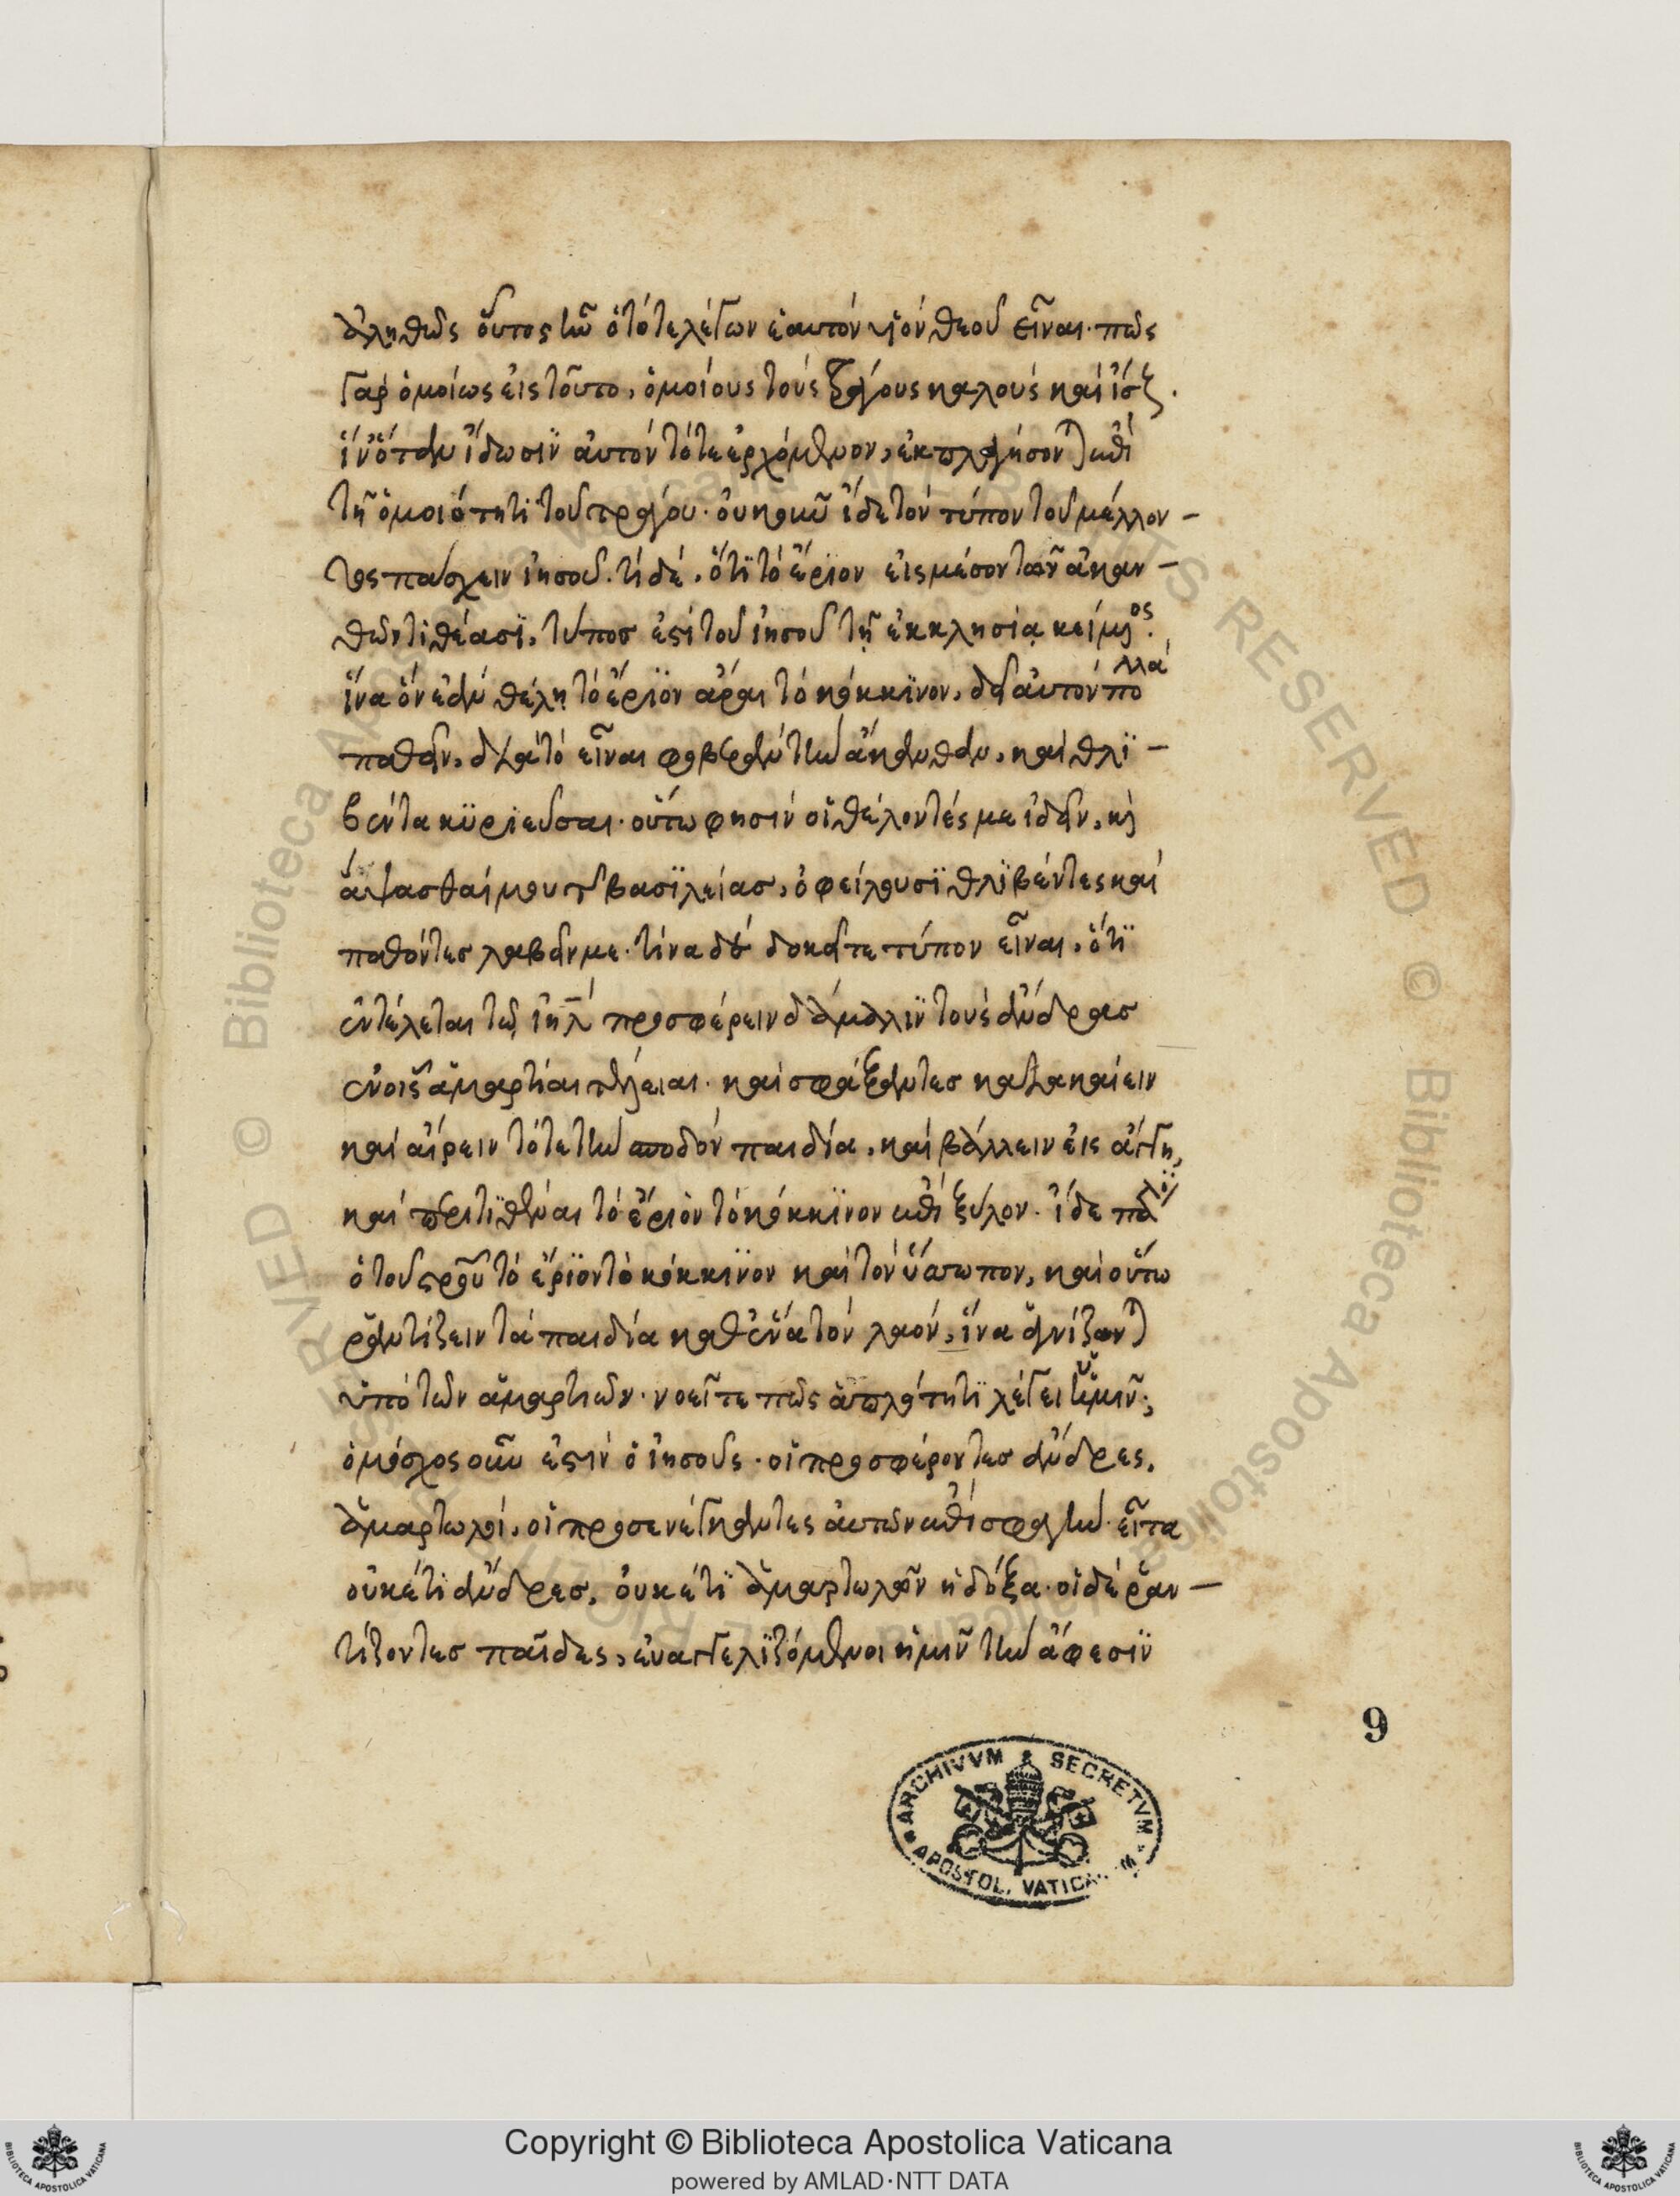 ἀληθῶς οὗτος ἦν ὁ τότε λέγων ἑαυτὸν υἱὸν θεοῦ εἶναι· πῶς
γὰρ ὁμοίως εἰς τοῦτο, ὁμοίους τοὺς τράγους καλοὺς καὶ ἴσους.
ἵν' ὅταν ἴδωσιν αὐτὸν τότε ἐρχόμενον, ἐκπλαγήσονται ἐπὶ
τῇ ὁμοιότητι τοῦ τράγου· οὐκοῦν ἴδε τὸν τύπον τοῦ μέλλον-
τος πάσχειν ἰησοῦ. τί δέ, ὅτι τὸ ἔριον εἰς μέσον τῶν ἀκαν-
θῶν τιθέασι, τύπος ἐστὶ τοῦ ἰησοῦ τῇ ἐκκλησίᾳ κείμενος.
ἵνα ὃν ἐὰν θέλῃ τὸ ἔριον ἆραι τὸ κόκκινον, δεῖ αὐτὸν πολλὰ
παθεῖν, διὰ τὸ εἶναι φοβερὰν τὴν ἄκανθαν, καὶ θλι-
βέντα κυριεῦσαι· οὕτω φησὶν οἱ θέλοντές με ἰδεῖν, καὶ
ἅψασθαί μου τῆς βασιλείας, ὀφείλουσι θλιβέντες καὶ
παθόντες λαβεῖν με· τίνα δὲ δοκεῖτε τύπον εἶναι, ὅτι
ἐντέλεται τῷ ἰηλ προσφέρειν δάμαλιν τοὺς ἄνδρας
ἐν οἷς ἁμαρτίαι τέλειαι· καὶ σφάξαντες κατακαίειν
καὶ αἴρειν τότε τὴν σποδὸν παιδία, καὶ βάλλειν εἰς ἄγγη,
καὶ περιτιθέναι τὸ ἔριον τὸ κόκκινον ἐπὶ ξύλον· ἴδε πάλιν
ὁ τοῦ σταυροῦ τὸ ἔριον τὸ κόκκινον καὶ τὸν ὕσσωπον, καὶ οὕτω
ῥαντίζειν τὰ παιδία καθ' ἕνα τὸν λαόν, ἵνα ἁγνίζωνται
ὑπὸ τῶν ἁμαρτιῶν· νοεῖτε πῶς ἁπλότητι λέγει ὑμῖν·
ὁ μόσχος οὖν ἐστιν ὁ ἰησοῦς· οἱ προσφέροντες ἄνδρες,
ἁμαρτωλοί, οἱ προσενέγκαντες αὐτὸν ἐπὶ σφαγήν· εἶτα
οὐκέτι ἄνδρες, οὐκέτι ἁμαρτωλῶν ἡ δόξα· οἱ δὲ ῥαν-
τίζοντες παῖδες, εὐαγγελιζόμενοι ἡμῖν τὴν ἄφεσιν
9
ARCHIVVM SECRETVM
APOSTOL. VATICA
© Biblioteca Apostolica Vaticana
Copyright © Biblioteca Apostolica Vaticana
powered by AMLAD·NTT DATA